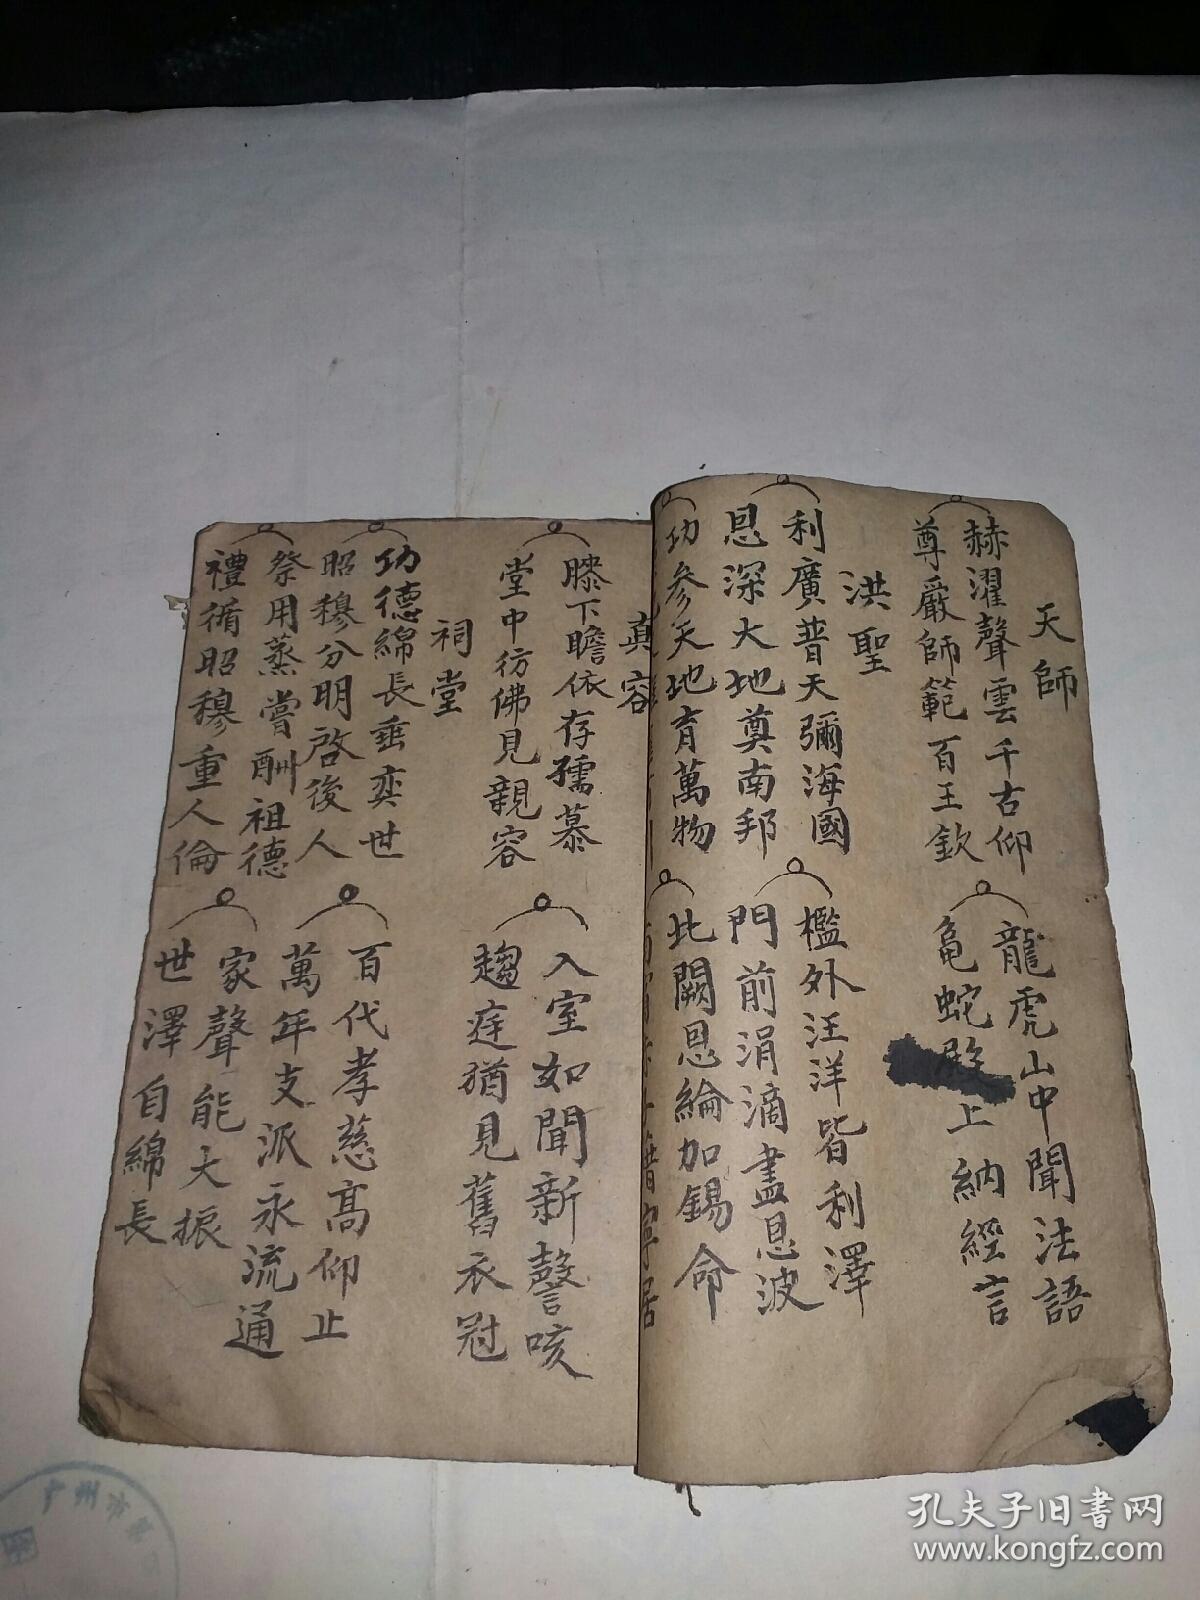 天師
赫濯聲雲千古仰
尊嚴師範百王欽
龍虎山中聞法語
龜蛇殿上納經言
洪聖
利廣普天彌海國
恩深大地奠南邦
檻外汪洋皆利澤
門前涓滴盡恩波
功參天地育萬物
北闕恩綸加錫命
真容
膝下瞻依存孺慕
堂中彷佛見親容
入室如聞新謦咳
趨庭猶見舊衣冠
祠堂
功德綿長垂奕世
昭穆分明啓後人
百代孝慈高仰止
萬年支派永流通
祭用蒸嘗酬祖德
禮循昭穆重人倫
家聲能大振
世澤自綿長
广州市第
孔夫子旧书网
www.kongfz.com